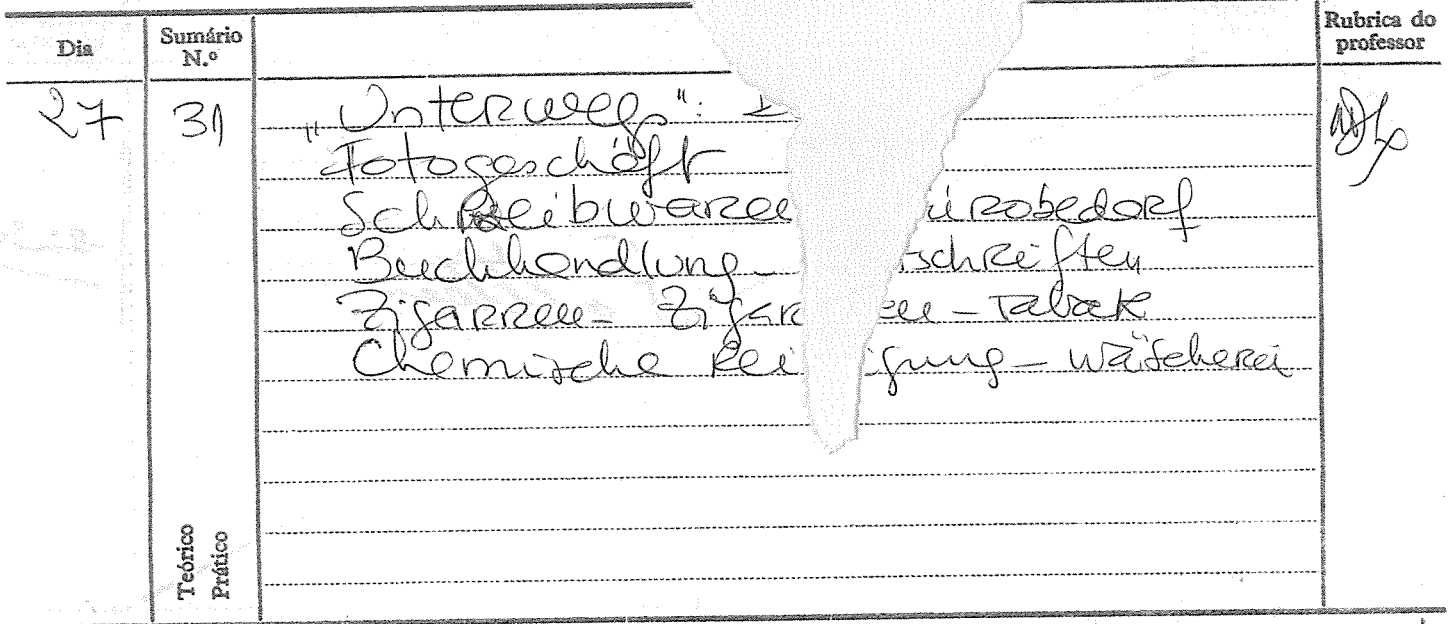 Dia
Sumário N.º
Rubrica do professor
27
31
„Unterwegs":
Fotogeschäft
Schreibwaren ürobedarf
Buchhandlung- schriften
Zigarren- Zigar en-Tabak
Chemische Rei igung-Wäscherei
Teórico
Prático